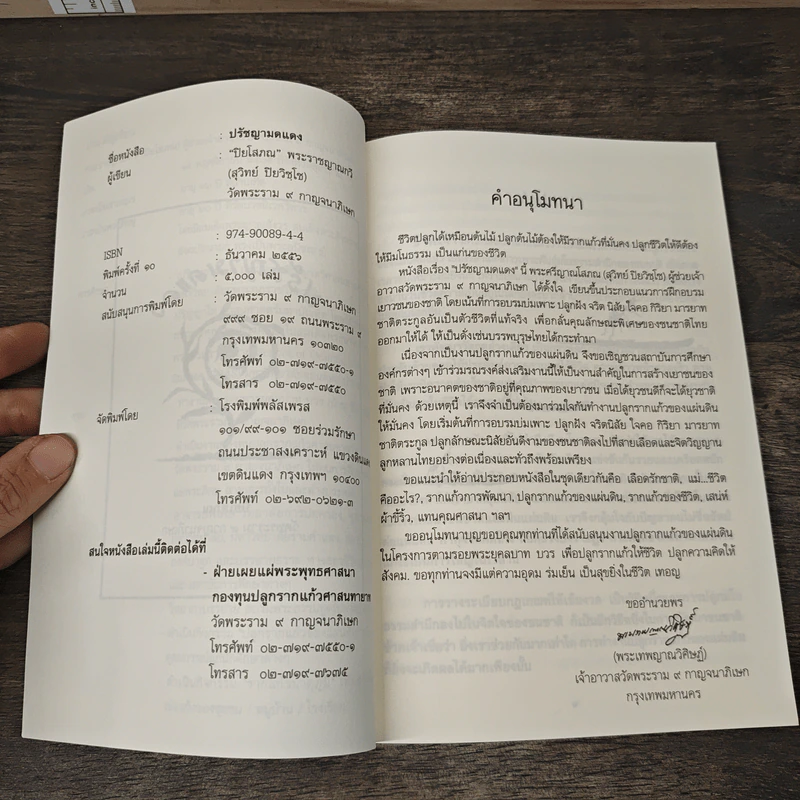 ชื่อหนังสือ : ปรัชญามดแดง
ผู้เขียน : "ปิยโสภณ" พระราชญาณกวี
(สุวิทย์ ปิยวิชฺโช)
วัดพระราม ๙ กาญจนาภิเษก
ISBN : 974-90089-4-4
พิมพ์ครั้งที่ ๑๐ : ธันวาคม ๒๕๕๖
จำนวน : ๕,๐๐๐ เล่ม
สนับสนุนการพิมพ์โดย : วัดพระราม ๙ กาญจนาภิเษก
๙๙๙ ซอย ๑๙ ถนนพระราม ๙
กรุงเทพมหานคร ๑๐๓๒๐
โทรศัพท์ ๐๒-๗๑๙-๗๕๕๐-๑
โทรสาร ๐๒-๗๑๙-๗๕๕๐
จัดพิมพ์โดย : โรงพิมพ์พลัสเพรส
๑๐๑/๙๙-๑๐๑ ซอยร่วมรักษา
ถนนประชาสงเคราะห์ แขวงดินแดง
เขตดินแดง กรุงเทพฯ ๑๐๔๐๐
โทรศัพท์ ๐๒-๖๙๒-๐๖๒๑-๓
สนใจหนังสือเล่มนี้ติดต่อได้ที่
- ฝ่ายเผยแผ่พระพุทธศาสนา
กองทุนปลูกรากแก้วศาสนทายาท
วัดพระราม ๙ กาญจนาภิเษก
โทรศัพท์ ๐๒-๗๑๙-๗๕๕๐-๑
โทรสาร ๐๒-๗๑๙-๗๖๗๕
คำอนุโมทนา
ชีวิตปลูกได้เหมือนต้นไม้ ปลูกต้นไม้ต้องให้มีรากแก้วที่มั่นคง ปลูกชีวิตให้ดีต้อง
ให้มีมโนธรรม เป็นแก่นของชีวิต
หนังสือเรื่อง "ปรัชญามดแดง" นี้ พระศรีญาณโสภณ (สุวิทย์ ปิยวิชฺโช) ผู้ช่วยเจ้า
อาวาสวัดพระราม ๙ กาญจนาภิเษก ได้ตั้งใจ เขียนขึ้นประกอบแนวการฝึกอบรม
เยาวชนของชาติ โดยเน้นที่การอบรมบ่มเพาะ ปลูกฝัง จริต นิสัย ใจคอ กิริยา มารยาท
ชาติตระกูลอันเป็นตัวชีวิตที่แท้จริง เพื่อกลั่นคุณลักษณะพิเศษของชนชาติไทย
ออกมาให้ได้ ให้เป็นดั่งเช่นบรรพบุรุษไทยได้กระทำมา
เนื่องจากเป็นงานปลูกรากแก้วของแผ่นดิน จึงขอเชิญชวนสถาบันการศึกษา
องค์กรต่างๆ เข้าร่วมรณรงค์ส่งเสริมงานนี้ให้เป็นงานสำคัญในการสร้างเยาวชนของ
ชาติ เพราะอนาคตของชาติอยู่ที่คุณภาพของเยาวชน เมื่อได้ยุวชนดีก็จะได้ยุวชาติ
ที่มั่นคง ด้วยเหตุนี้ เราจึงจำเป็นต้องมาร่วมใจกันทำงานปลูกรากแก้วของแผ่นดิน
ให้มั่นคง โดยเริ่มต้นที่การอบรมบ่มเพาะ ปลูกฝัง จริตนิสัย ใจคอ กิริยา มารยาท
ชาติตระกูล ปลูกลักษณะนิสัยอันดีงามของชนชาติลงไปที่สายเลือดและจิตวิญญาณ
ลูกหลานไทยอย่างต่อเนื่องและทั่วถึงพร้อมเพรียง
ขอแนะนำให้อ่านประกอบหนังสือในชุดเดียวกันคือ เลือดรักชาติ, แม่...ชีวิต
คืออะไร?, รากแก้วการพัฒนา, ปลูกรากแก้วของแผ่นดิน, รากแก้วของชีวิต, เสน่ห์
ผ้าขี้ริ้ว, แทนคุณศาสนา ฯลฯ
ขออนุโมทนาบุญขอบคุณทุกท่านที่ได้สนับสนุนงานปลูกรากแก้วของแผ่นดิน
ในโครงการตามรอยพระยุคลบาท บวร เพื่อปลูกรากแก้วให้ชีวิต ปลูกความคิดให้
สังคม. ขอทุกท่านจงมีแต่ความอุดม ร่มเย็น เป็นสุขยิ่งในชีวิต เทอญ
ขออำนวยพร
(พระเทพญาณวิศิษฏ์)
เจ้าอาวาสวัดพระราม ๙ กาญจนาภิเษก
กรุงเทพมหานคร